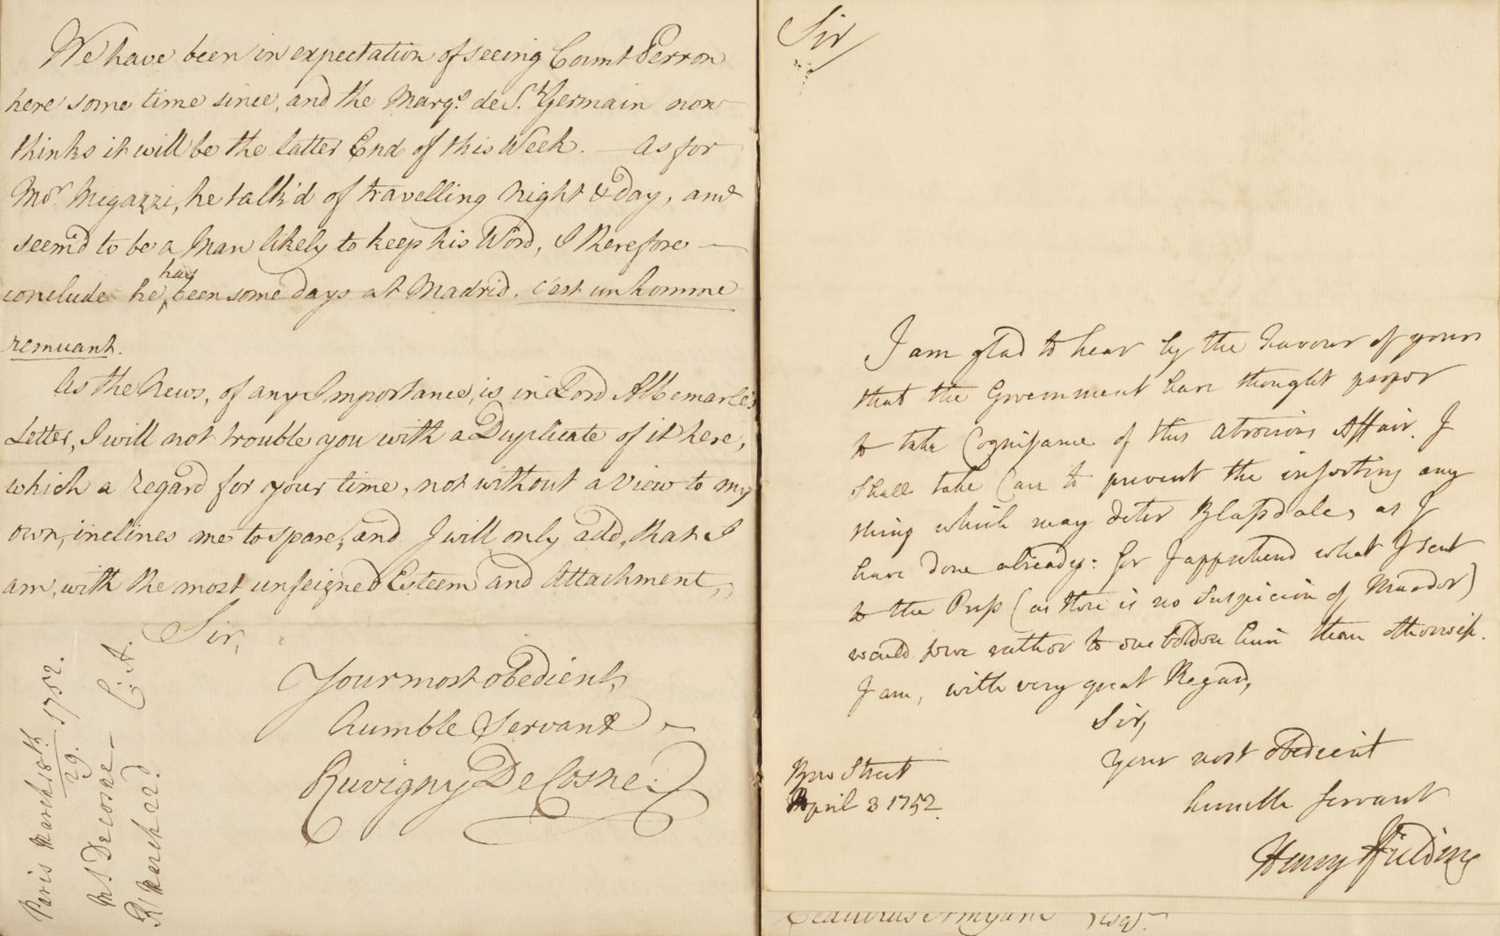 We have been in expectation of seeing Count Perron
here some time since, and the Marqs. de St. Germain now
thinks it will be the latter End of this Week. — As for
Mor. Migazzi, he talk'd of travelling Night & Day, and
seem'd to be a Man likely to keep his Word, I therefore —
conclude he has been some days at Madrid. c'est un homme
remuant.
As the News, of any Importance, is in Lord Albemarle's
Letter, I will not trouble you with a Duplicate of it here,
which a regard for your time, not without a View to my
own, inclines me to spare, and I will only add, that I
am, with the most unfeigned Esteem and Attachment,
Sir,
Your most obedient,
humble Servant
Ruvigny De Cosne.
Paris March 18th/29. 1752.
Mr. Decosne —
R/ March 23d
C: A.
Sir
I am glad to hear by the Favour of yours
that the Government have thought proper
to take Cognisance of this atrocious Affair. I
shall take Care to prevent the inserting any
thing which may deter Blapsdale, as I
have done already: for I apprehend what I sent
to the Press (as there is no Suspicion of Murder)
would serve rather to embolden him than otherwise.
I am, with very great Regard,
Sir,
Your most obedient
humble servant
Henry Ffielding
Bow Street
April 3 1752.
Claudius Amyand Esqr.